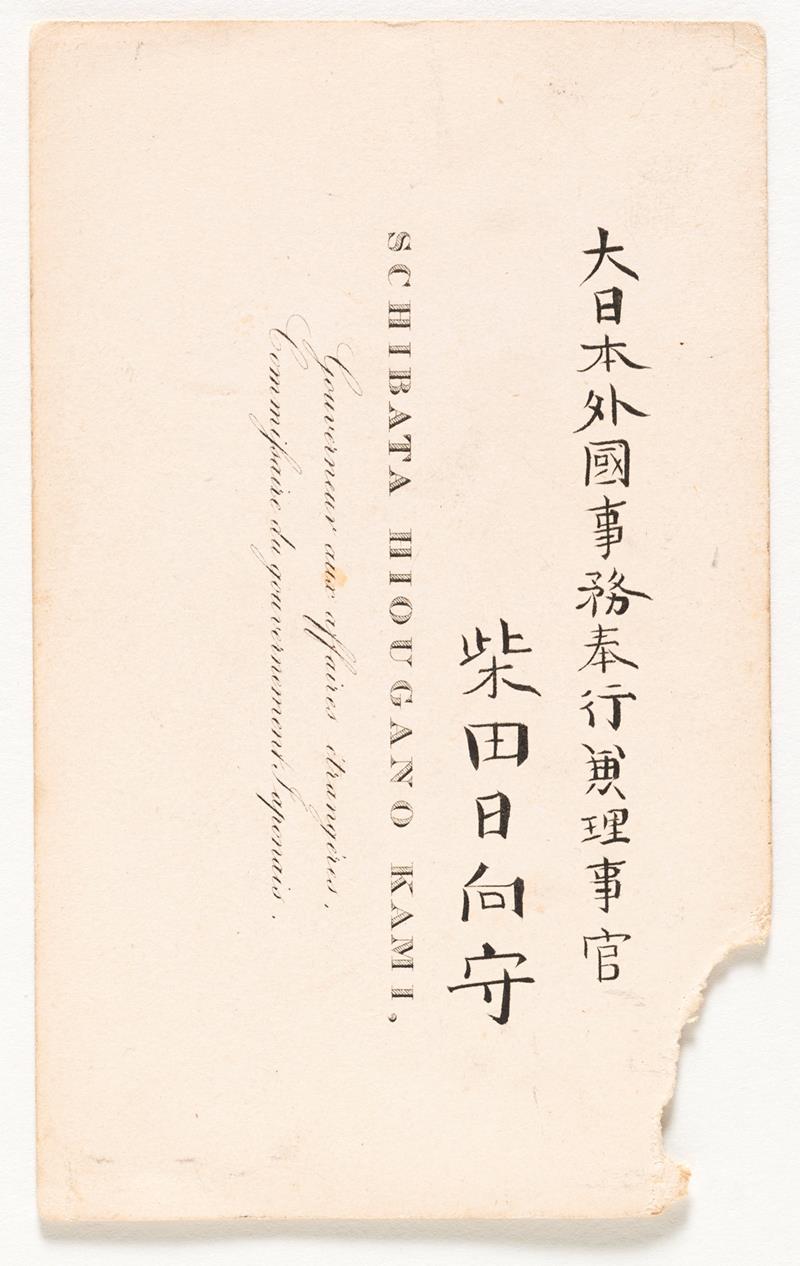 大日本外國事務奉行兼理事官
柴田日向守
SCHIBATA HIOUGANO KAMI,
Gouverneur aux affaires étrangères.
Commissaire du gouvernement Japonais.